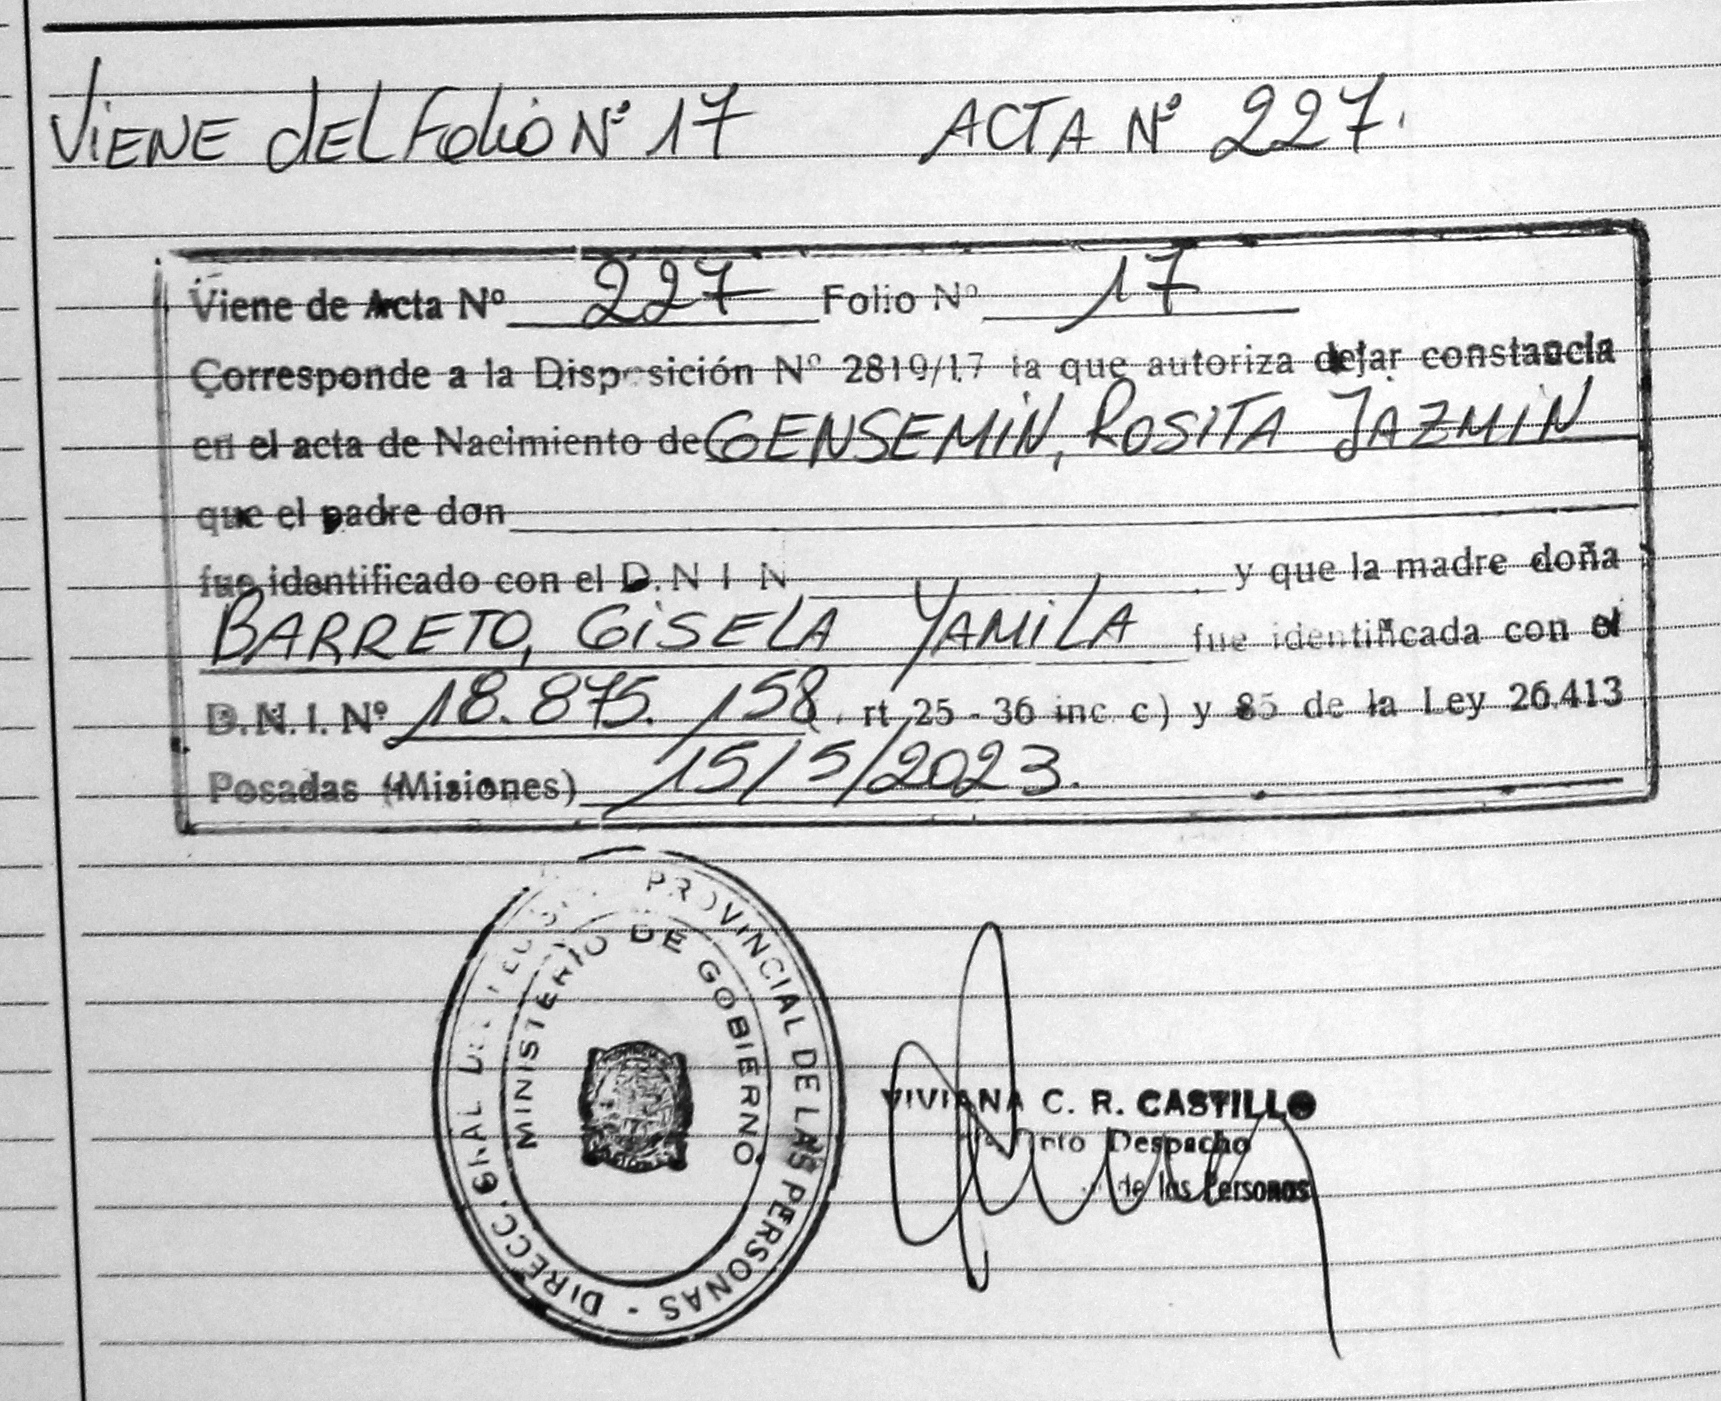 ViENE dEL Folio Nº 17 ACTA Nº 227.
Viene de Acta Nº 227 Folio Nº 17
Corresponde a la Disposición Nº 2819/17 la que autoriza dejar constancia
en el acta de Nacimiento de GENSEMiN, ROSiTA JAZMiN
que el padre don
fue identificado con el D.N I N y que la madre doña
BARRETO, GiSELA YAMiLA fue identificada con el
D.N.I. Nº 18.875.158 ( rt 25 - 36 inc c) y 85 de la Ley 26.413
Posadas (Misiones) 15/5/2023.
DIRECC. GRAL PROVINCIAL DE LAS PERSONAS -
MINISTERIO DE GOBIERNO
VIVIANA C. R. CASTILLO
Despacho
de las Personas